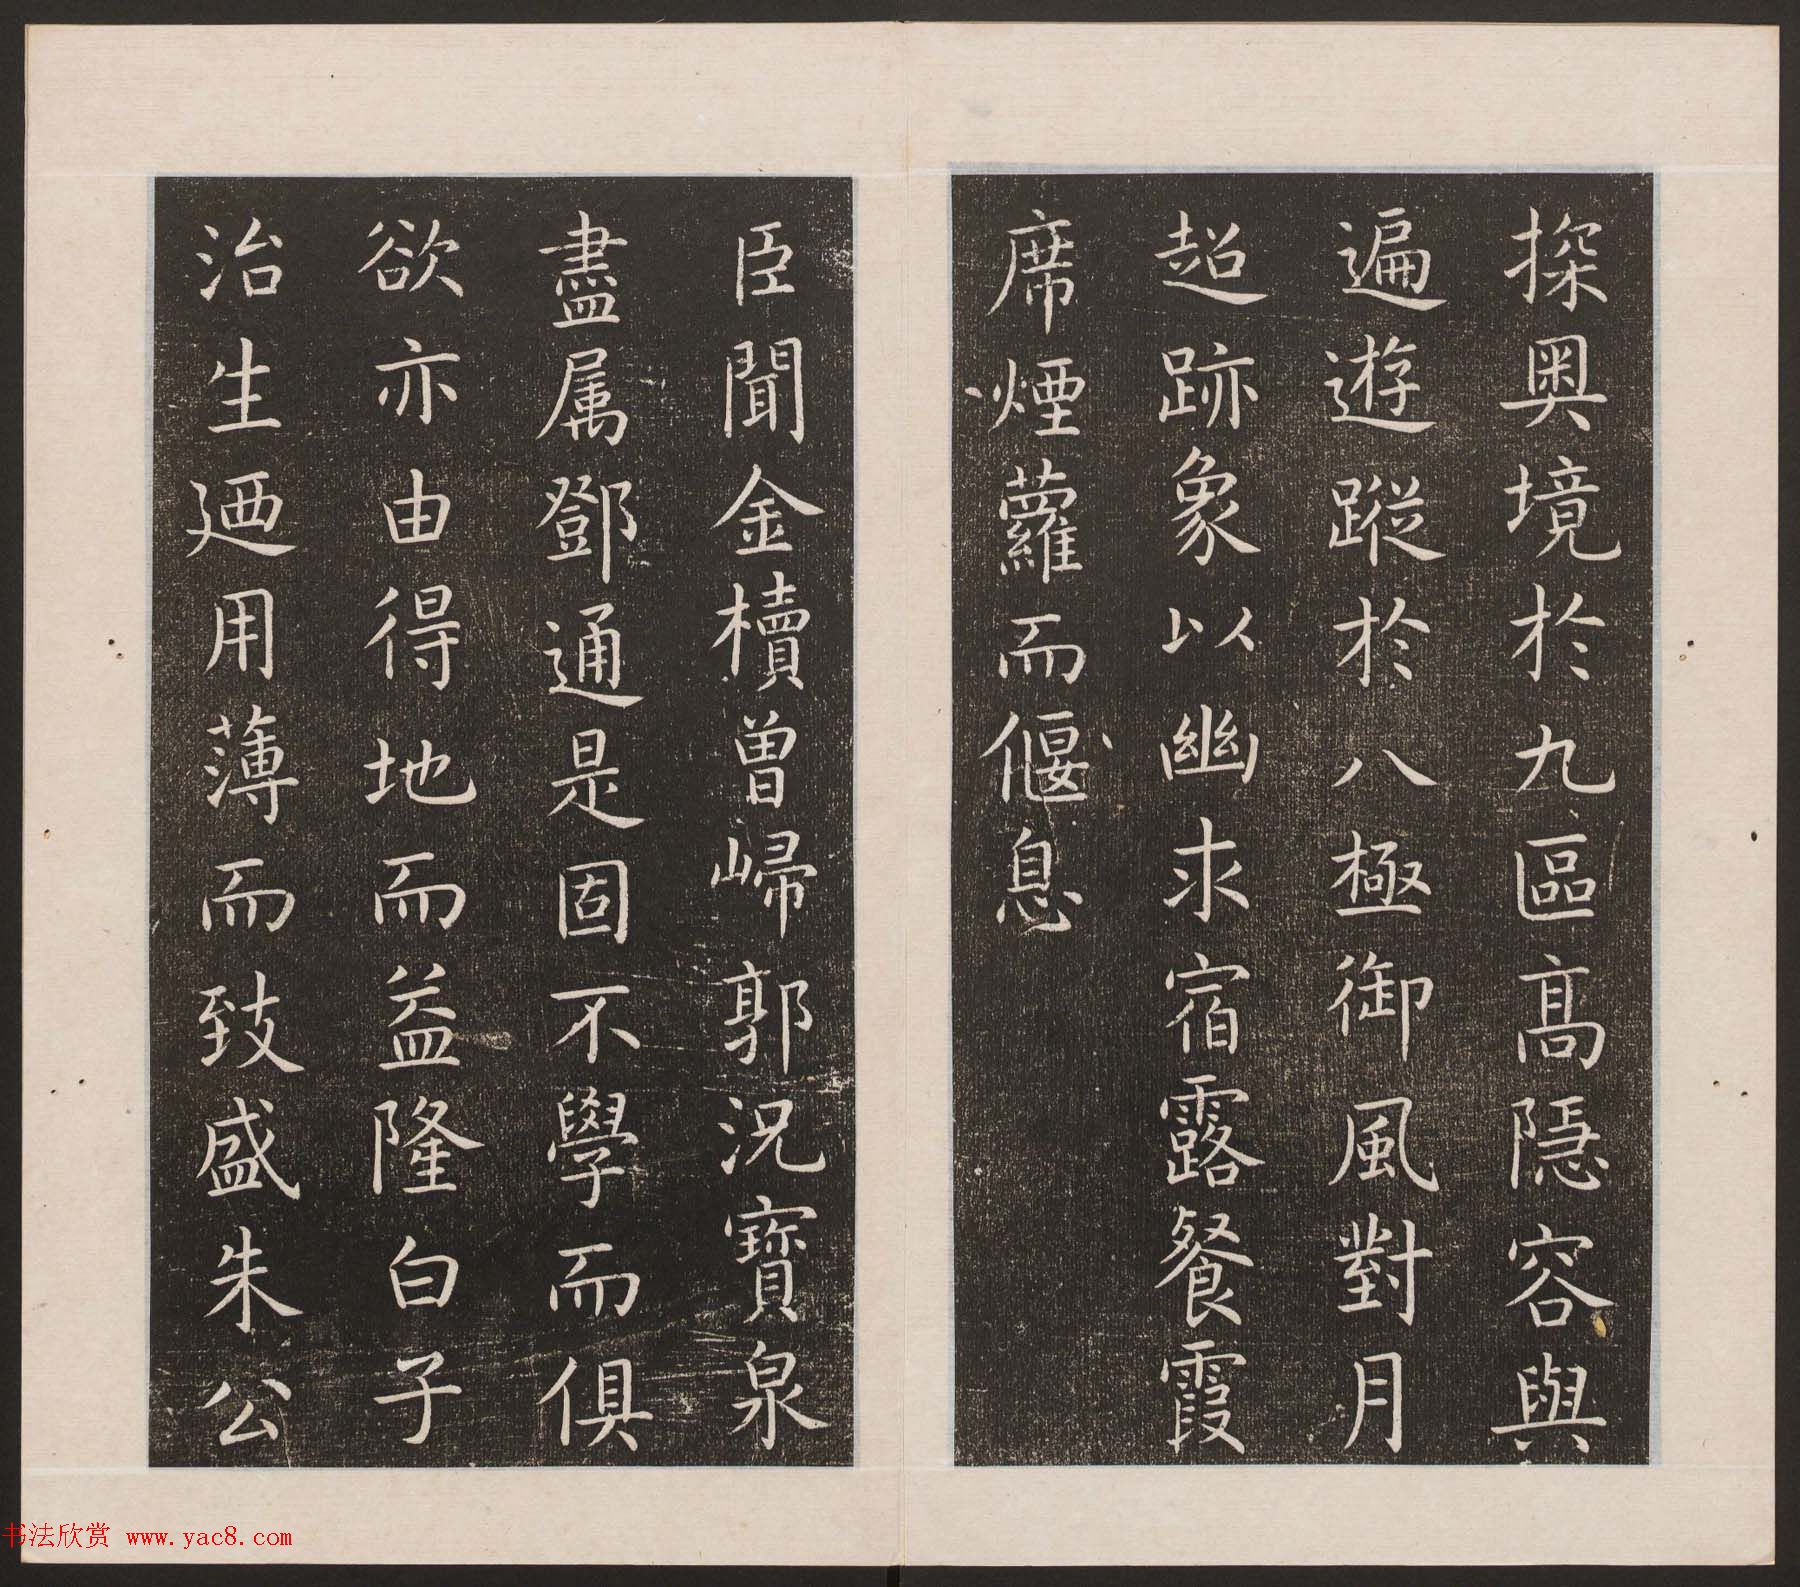 探奧境於九區高隱容與
遍遊蹤於八極御風對月
超跡象以幽求宿露餐霞
席煙蘿而偃息
臣聞金櫝曾歸郭況寶泉
盡属鄧通是固不學而俱
欲亦由得地而益隆白子
治生迺用薄而致盛朱公
书法欣赏 www.yac8.com